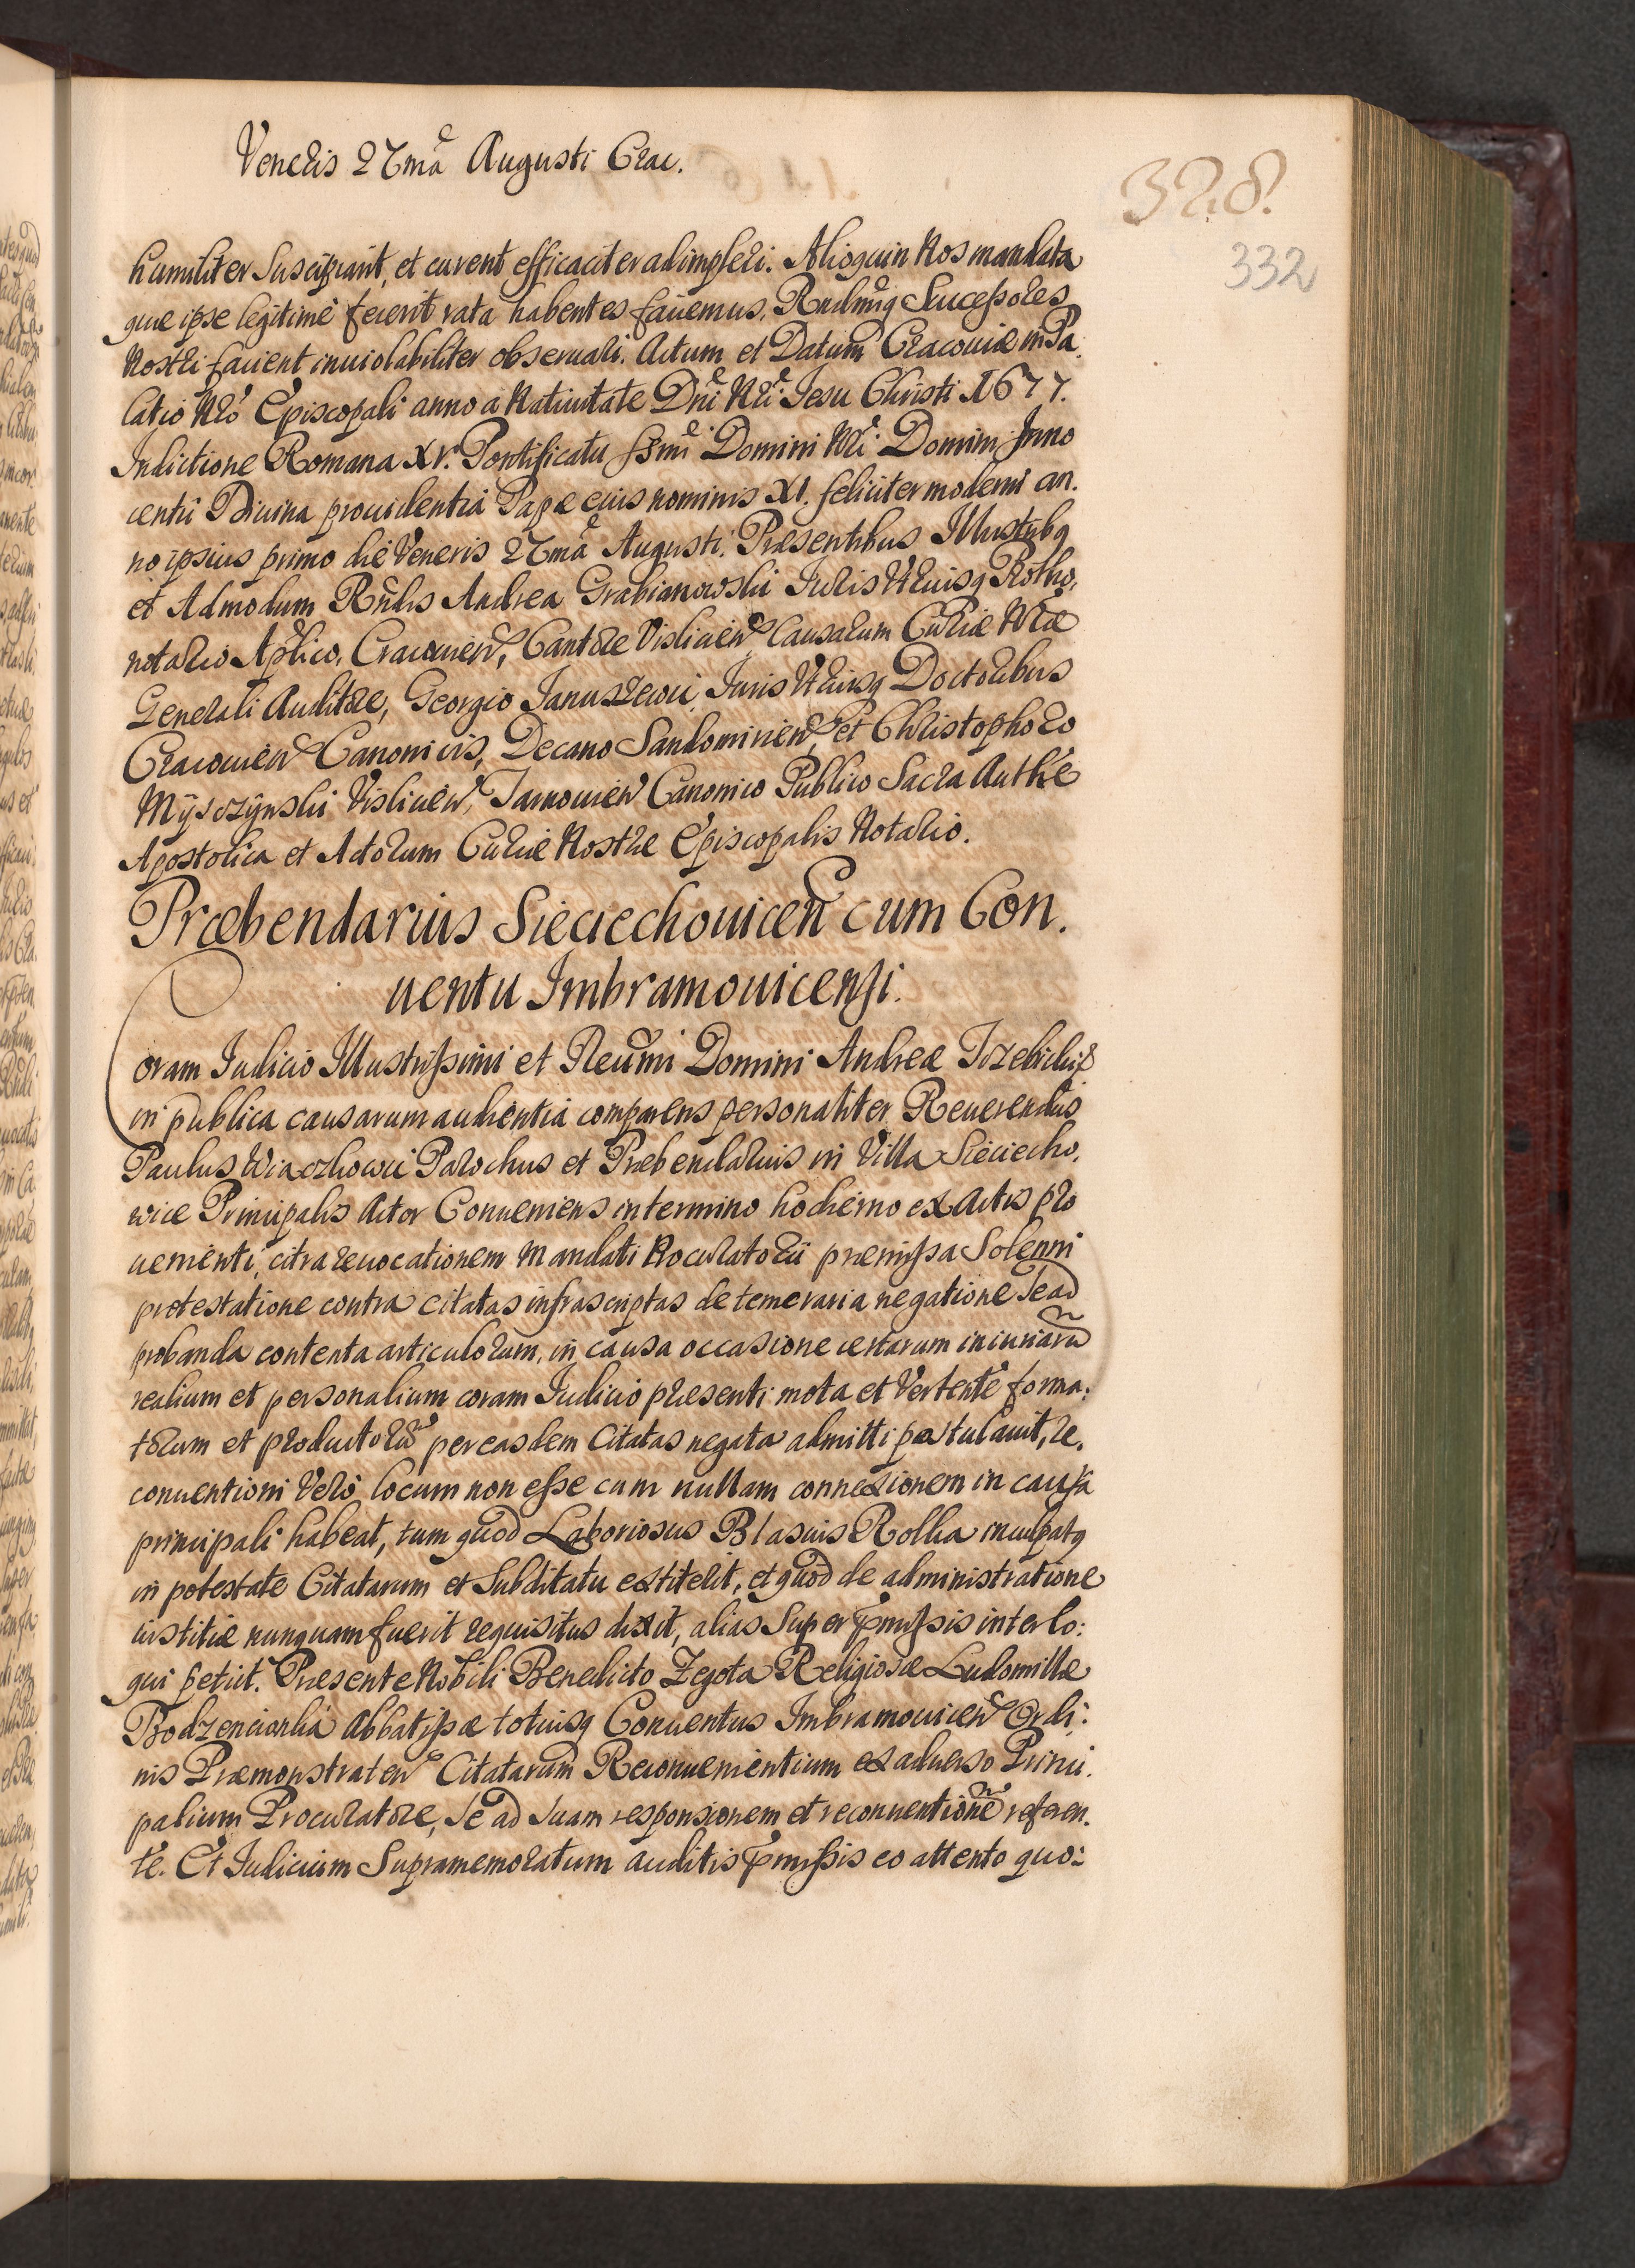 Veneris 27mã Augusti Crac.
328.
332
humiliter Suscipiant, et curent efficaciter adimpleri. Alioquin Nos mandata
que ipse legitimè fecerit rata habentes faciemus, Rndimiq Successores
Nostri facient inuiolabiliter obseruari. Actum et Datum Cracouiæ in Pa
latio Nrõ Episcopali anno a Natiuitate Dni Nri Jesu Christi 1677.
Indictione Romana XV. Pontificatu ssmi Domini Nri Domini Inno
centii Diuina prouidentia Papæ eius nominis XI. feliciter moderni an.
no ipsius primo die Veneris 27mã Augusti. Præsentibus Illustribq
et Admodum Rndis Andrea Grabianowski Juris Vtriusq Protho.
notario Aplico, Cracouień, Cantore Visliceń, Causarum Curiæ Nræ
Generali Auditore, Georgio Januszewic Juris Vtriusq Doctoribus
Cracouień Canonicis, Decano Sandomirień, et Christophoro
Mÿsczÿnski Visliceń, Tarnouień Canonico Publico Sacra Authe
Apostolica et Actorum Curiæ Nostræ Episcopalis Notario.
Præbendarius Sieciechouiceń cum Con.
uentu Imbramouicensi.
Coram Judicio Illustrissimi et Reumi Domini Andreæ Trzebicki &
in publica causarum audientia comparens personaliter Reuerendus
Paulus Wiaczkowic Parochus et Præbendarius in Villa Sieciecho.
wice Principalis Actor Conueniens in termino hodierno ex Actis pro
uenienti, citra reuocationem Mandati Procuratorii præmissa Solenni
protestatione contra citatas infrascriptas de temeraria negatione Se ad
probanda contenta articulorum, in causa occasione certarum iniuriarũ
realium et personalium coram Judicio præsenti mota et Vertente forma:
torum et productorũ per easdem Citatas negata admitti postulauit, re.
conuentioni Verò locum non esse cum nullam connexionem in causa
principali habeat, tum quod Laboriosus Blasius Rolka inculpatq
in potestate Citatarum et Subditatu extiterit, et quod de administratione
iustitiæ nunquam fuerit requisitus dixit, alias Super p̃missis interlo:
qui petiit. Præsente Nobili Benedicto Zegota Religiosæ Ludomillæ
Bodzencianka Abbatissæ totiusq Conuentus Imbramouiceń Ordi:
nis Præmonstrateń Citatarum Reconuenientium ex aduerso Princi.
palium Procuratore, Se ad Suam responsionem et reconuentionẽ referen.
te. Et Judicium Supramemoratum auditis p̃missis eo attento quo: